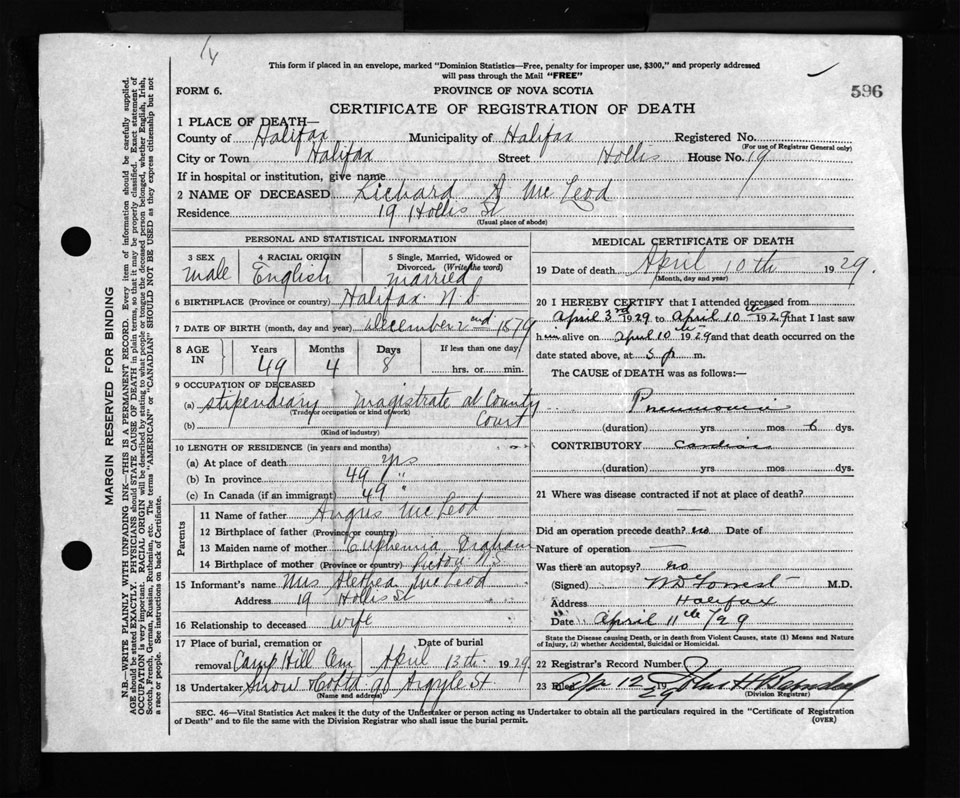 This form if placed in an envelope, marked "Dominion Statistics—Free, penalty for improper use, $300," and properly addressed
will pass through the Mail "FREE"
FORM 6.
PROVINCE OF NOVA SCOTIA
596
CERTIFICATE OF REGISTRATION OF DEATH
1 PLACE OF DEATH—
County of Halifax Municipality of Halifax Registered No.
(For use of Registrar General only)
City or Town Halifax Street Hollis House No. 19
If in hospital or institution, give name
2 NAME OF DECEASED Richard A McLeod
Residence 19 Hollis St
(Usual place of abode)
PERSONAL AND STATISTICAL INFORMATION
3 SEX 4 RACIAL ORIGIN 5 Single, Married, Widowed or
Divorced. (Write the word)
male English married
6 BIRTHPLACE (Province or country) Halifax N.S.
7 DATE OF BIRTH (month, day and year) December 2nd 1879
8 AGE IN Years Months Days If less than one day
49 4 8 hrs. or min.
9 OCCUPATION OF DECEASED
(a) Stipendiary Magistrate at County
(Trade or occupation or kind of work)
(b) Court
(Kind of industry)
10 LENGTH OF RESIDENCE (in years and months)
(a) At place of death yrs
(b) In province 49 "
(c) In Canada (if an immigrant) 49 "
Parents
11 Name of father Angus McLeod
12 Birthplace of father (Province or country)
13 Maiden name of mother Euphemia Graham
14 Birthplace of mother (Province or country) Pictou N.S.
15 Informant's name Mrs Alethea McLeod
Address 19 Hollis St
16 Relationship to deceased wife
17 Place of burial, cremation or Date of burial
removal Camp Hill Cem April 13th 1929
18 Undertaker Snow & Co Ltd 90 Argyle St.
(Name and address)
MEDICAL CERTIFICATE OF DEATH
19 Date of death April 10th 1929.
(Month, day and year)
20 I HEREBY CERTIFY that I attended deceased from
April 3rd 1929 to April 10th 1929 that I last saw
him alive on April 10th 1929 and that death occurred on the
date stated above, at 5 p m.
The CAUSE OF DEATH was as follows:—
Pneumonia
(duration) yrs mos 6 dys.
CONTRIBUTORY Cardiac
(duration) yrs. mos. dys.
21 Where was disease contracted if not at place of death?
Did an operation precede death? no Date of
Nature of operation —
Was there an autopsy? no
(Signed) W D Forrest M.D.
Address Halifax
Date April 11th /29
State the Disease causing Death, or in death from Violent Causes, state (1) Means and Nature
of Injury, (2) whether Accidental, Suicidal or Homicidal.
22 Registrar's Record Number
23 Filed Apr 12 1929 John H
(Division Registrar)
SEC. 46—Vital Statistics Act makes it the duty of the Undertaker or person acting as Undertaker to obtain all the particulars required in the "Certificate of Registration
of Death" and to file the same with the Division Registrar who shall issue the burial permit.
(OVER)
MARGIN RESERVED FOR BINDING
N.B.—WRITE PLAINLY WITH UNFADING INK—THIS IS A PERMANENT RECORD. Every item of information should be carefully supplied.
AGE should be stated EXACTLY. PHYSICIANS should STATE CAUSE OF DEATH in plain terms, so that it may be properly classified. Exact statement of
OCCUPATION is very important. RACIAL ORIGIN will be described by stating to what people or tongue the deceased person belonged, whether English, Irish,
Scotch, French, German, Russian, Ruthenian, etc. The terms "AMERICAN" or "CANADIAN" SHOULD NOT BE USED as they express citizenship but not
a race or people. See instructions on back of Certificate.